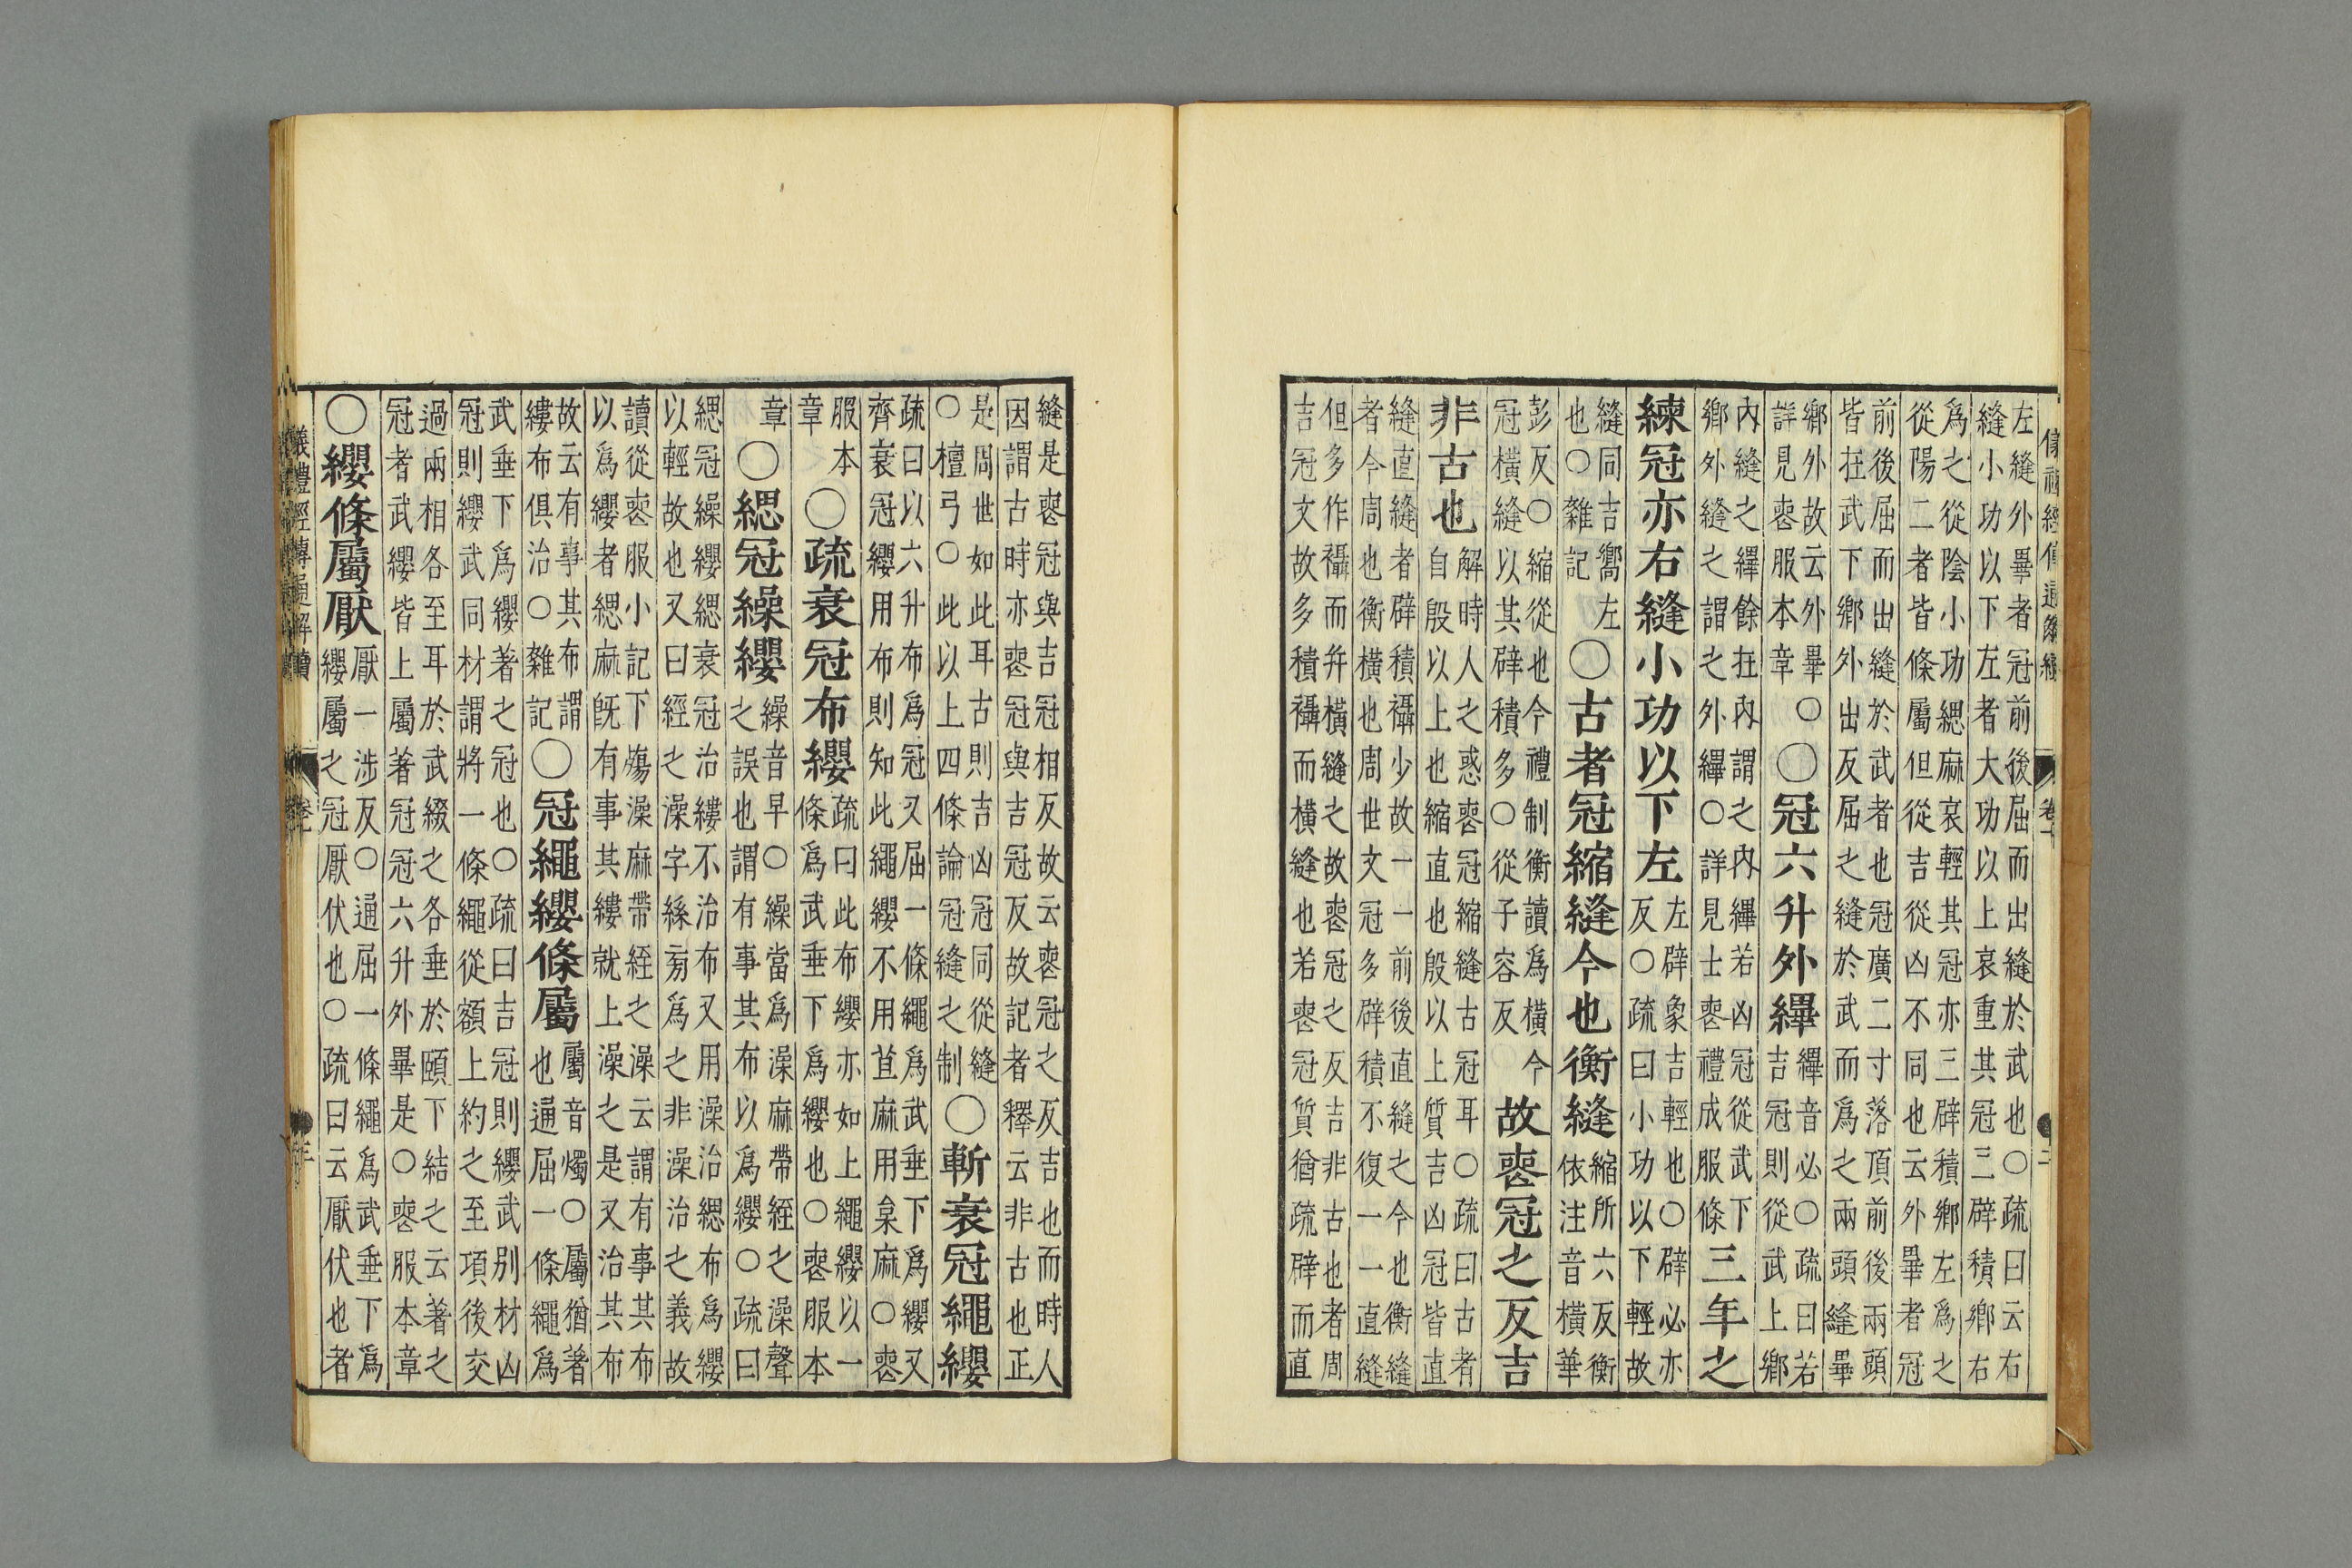 左縫外畢者冠前後屈而出縫於武也○疏曰云右
縫小功以下左者大功以上哀重其冠三辟積鄉右
爲之從陰小功緦麻哀輕其冠亦三辟積鄉左爲之
從陽二者皆條屬但從吉從凶不同也云外畢者冠
前後屈而出縫於武者也冠廣二寸落頂前後兩頭
皆在武下鄉外出反屈之縫於武而爲之兩頭縫畢
鄉外故云外畢○
詳見喪服本章
○冠六升外縪
縪音必○疏曰若
吉冠則從武上鄉
內縫之繹餘在內內謂之內縪若凶冠從武下
鄉外縫之謂之外縪○詳見士喪禮成服條
三年之
練冠亦右縫小功以下左
左辟象吉輕也○辟必亦
反○疏曰小功以下輕故
縫同吉嚮左
也○雜記
○古者冠縮縫今也衡縫
縮所六反衡
依注音橫華
彭反○縮從也今禮制衡讀爲橫今
冠橫縫以其辟積多○從子容反
故喪冠之反吉
非古也
解時人之惑喪冠縮縫古冠耳○疏曰古者
自殷以上也縮直也殷以上質吉凶冠皆直
縫直縫者辟積襵少故一一前後直縫之今也衡縫
者今周也衡橫也周世文冠多辟積不復一一直縫
但多作襵而幷橫縫之故喪冠之反吉非古也者周
吉冠文故多積襵而橫縫也若喪冠質猶疏辟而直
縫是喪冠與吉冠相反故云喪冠之反吉也而時人
因謂古時亦喪冠與吉冠反故記者釋云非古也正
是周世如此耳古則吉凶冠同從縫
○檀弓○此以上四條論冠縫之制
○斬衰冠繩纓
疏曰以六升布爲冠又屈一條繩爲武垂下爲纓又
齊衰冠纓用布則知此繩纓不用苴麻用枲麻○喪
服本
章
○疏衰冠布纓
疏曰此布纓亦如上繩纓以一
條爲武垂下爲纓也○喪服本
章
○緦冠繰纓
繰音早○繰當爲澡麻帶絰之澡聲
之誤也謂有事其布以爲纓○疏曰
緦冠繰纓緦衰冠治縷不治布又用澡治緦布爲纓
以輕故也又曰經之澡字絲旁爲之非澡治之義故
讀從喪服小記下殤澡麻帶絰之澡云謂有事其布
以爲纓者緦麻旣有事其縷就上澡之是又治其布
故云有事其布謂
縷布俱治○雜記
○冠繩纓條屬
屬音燭○屬猶著
也通屈一條繩爲
武垂下爲纓著之冠也○疏曰吉冠則纓武別材凶
冠則纓武同材謂將一條繩從額上約之至項後交
過兩相各至耳於武綴之各垂於頤下結之云著之
冠者武纓皆上屬著冠冠六升外畢是○喪服本章
○纓條屬厭
厭一涉反○通屈一條繩爲武垂下爲
纓屬之冠厭伏也○疏曰云厭伏也者